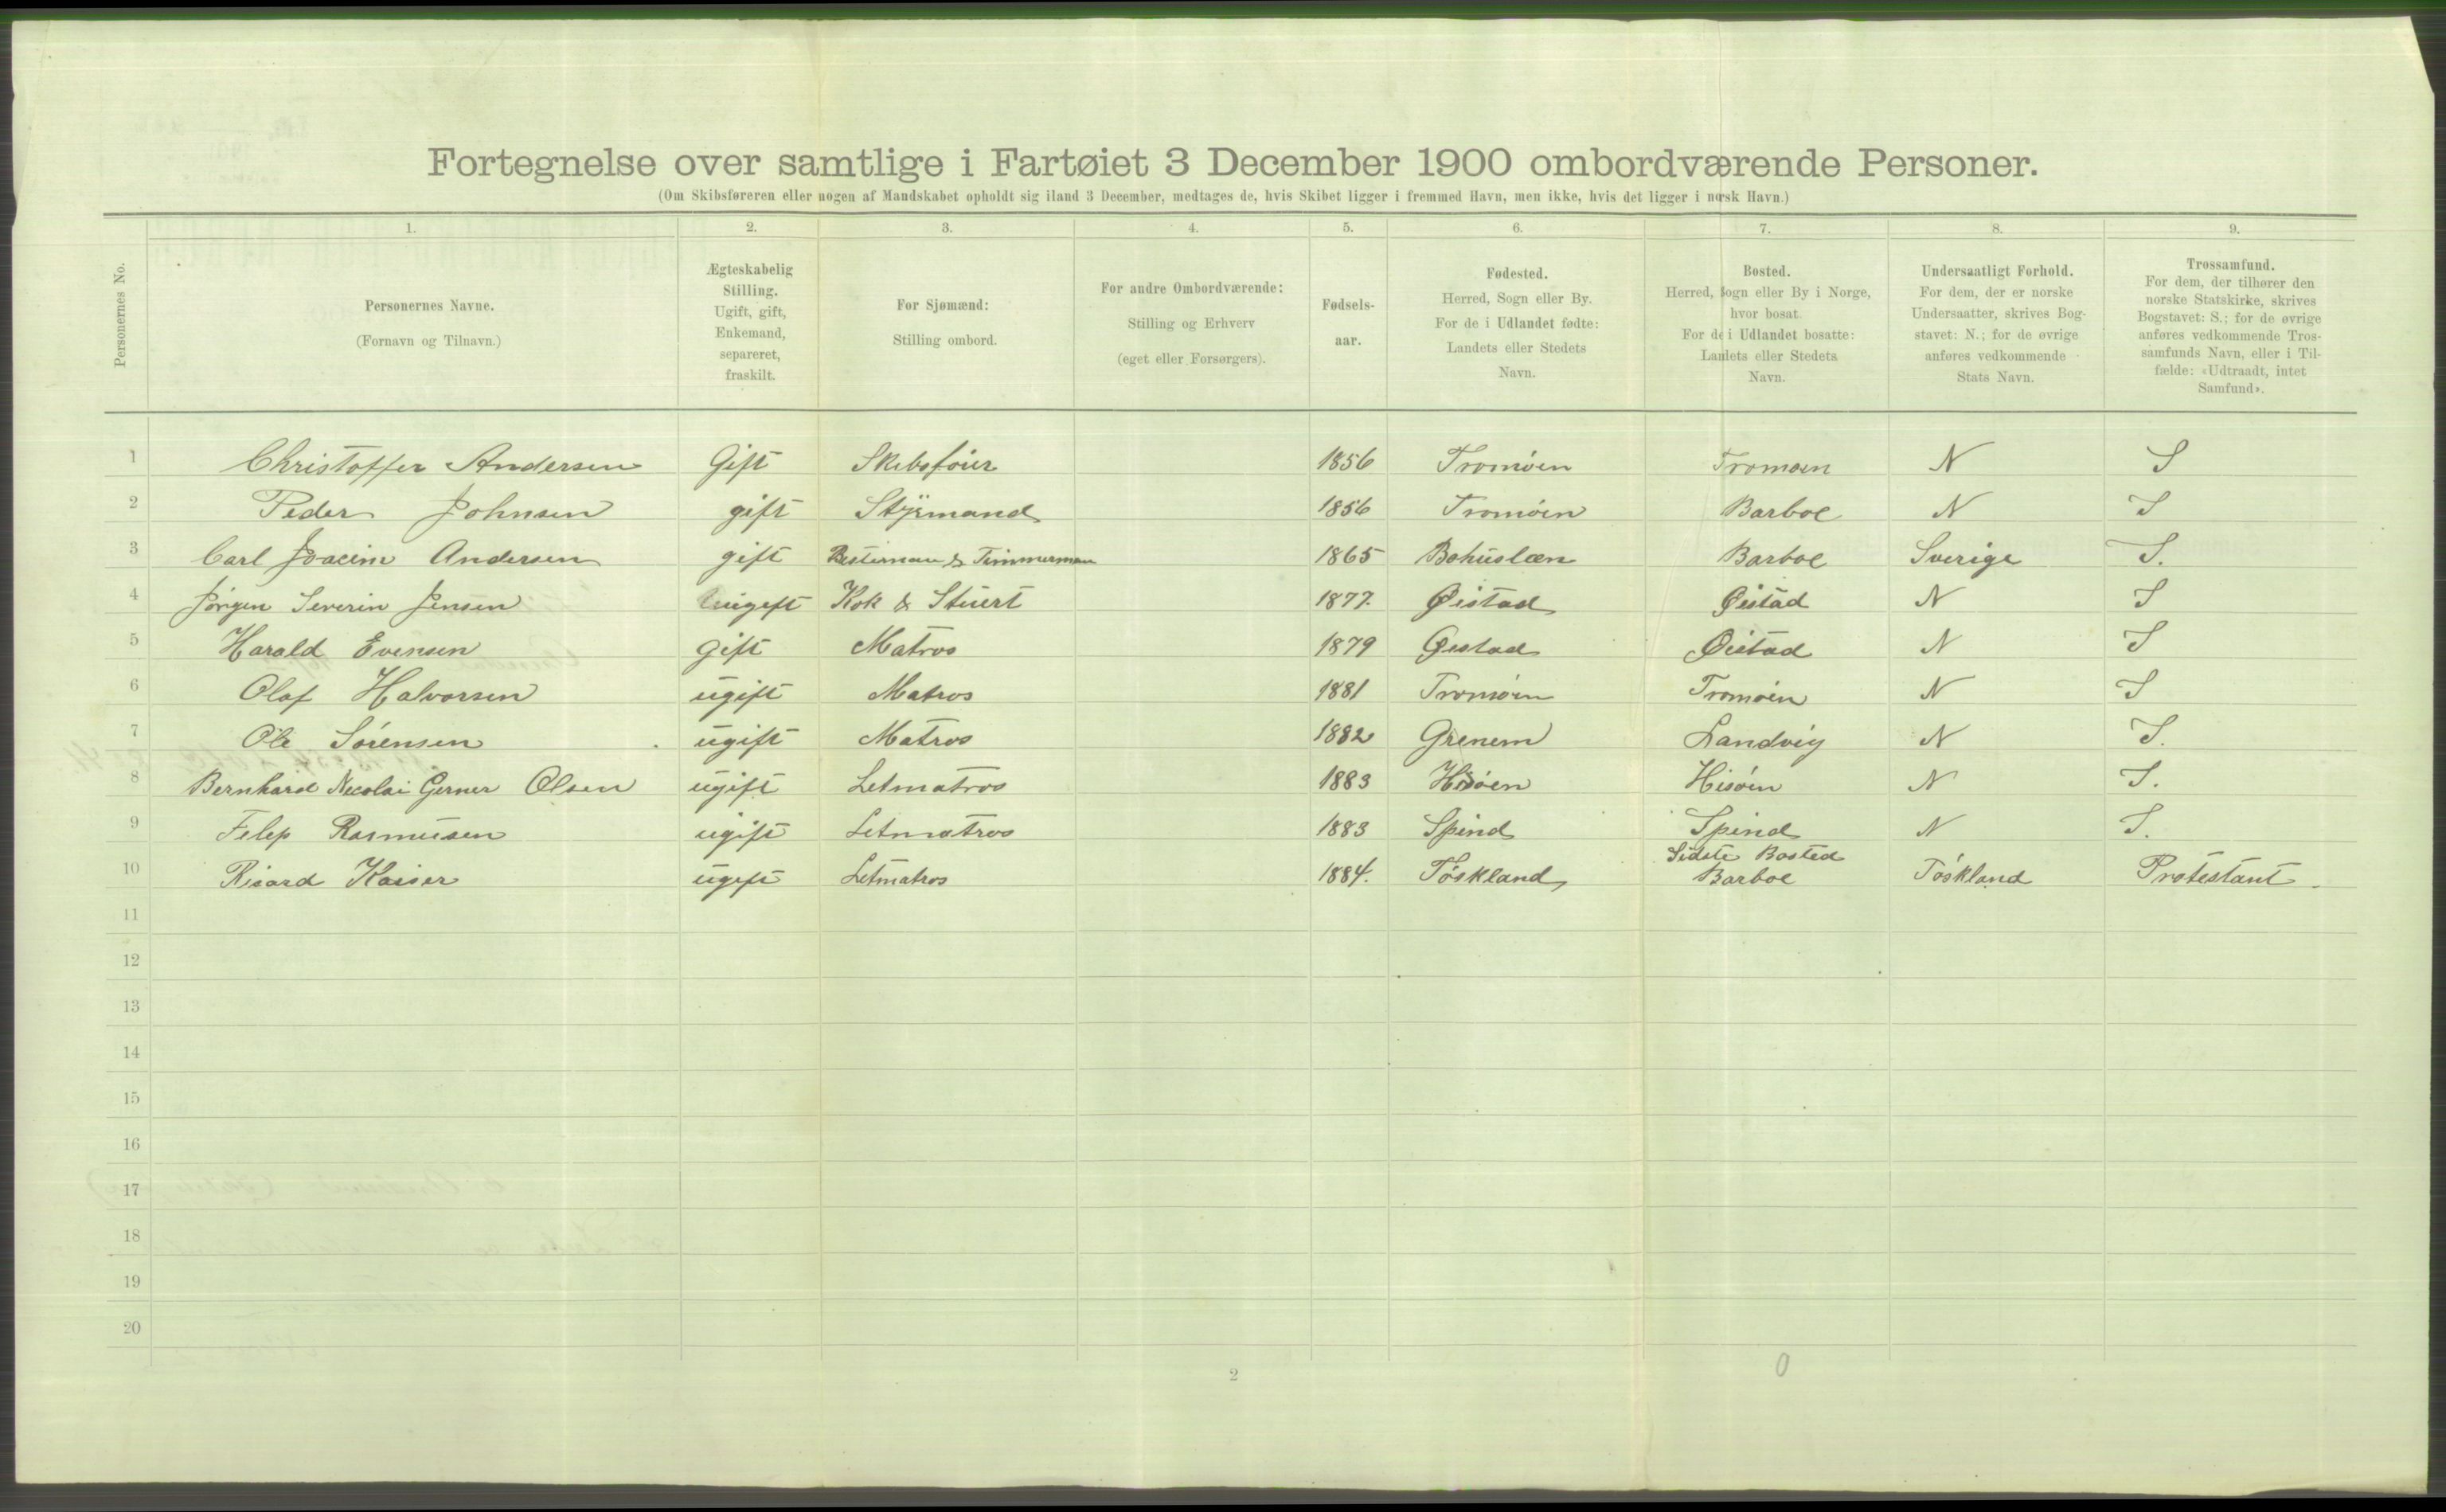 Fortegnelse over samtlige i Fartøiet 3 December 1900 ombordværende Personer.
(Om Skibsføreren eller nogen af Mandskabet opholdt sig iland 3 December, medtages de, hvis Skibet ligger i fremmed Havn, men ikke, hvis det ligger i norsk Havn.)
Personernes No.
1. 2. 3. 4. 5. 6. 7. 8. 9.
Personernes Navne.
(Fornavn og Tilnavn.)
Ægteskabelig
Stilling.
Ugift, gift,
Enkemand,
separeret,
fraskilt.
For Sjømænd:
Stilling ombord.
For andre Ombordværende:
Stilling og Erhverv
(eget eller Forsørgers).
Fødsels-
aar.
Fødested.
Herred, Sogn eller By.
For de i Udlandet fødte:
Landets eller Stedets
Navn.
Bosted.
Herred, Sogn eller By i Norge,
hvor bosat.
For de i Udlandet bosatte:
Landets eller Stedets
Navn.
Undersaatligt Forhold.
For dem, der er norske
Undersaatter, skrives Bog-
stavet: N.; for de øvrige
anføres vedkommende
Stats Navn.
Trossamfund.
For dem, der tilhører den
norske Statskirke, skrives
Bogstavet: S.; for de øvrige
anføres vedkommende Tros-
samfunds Navn, eller i Til-
fælde: «Udtraadt, intet
Samfund».
1 Christoffer Andersen Gift Skibsføier 1856 Tromøen Tromøen N S
2 Peder Johnsen gift Styrmand 1856 Tromøen Barboe N S
3 Carl Joacim Andersen gift Besteman & Timmerman 1865 Bohuslæn Barboe Sverige S.
4 Jørgen Severin Jensen ugift Kok & Stuert 1877. Øistad Øistad N S
5 Harald Evensen gift Matros 1879 Øestad Øistad N S
6 Olaf Halvorsen ugift Matros 1881 Tromøen Tromøen N S
7 Ole Sørensen ugift Matros 1882 Grenem Landvig N S.
8 Bernhard Necolai Gerner Olsen ugift Letmatros 1883 Hisøen Hisøen N S.
9 Felep Rasmusen ugift Letmatros 1883 Spind Spind N S.
Sidste Bosted
10 Risard Kaiser ugift Letmatros 1884. Tøskland Barboe Tøskland Protestant.
11
12
13
14
15
16
17
18
19
20
2 0